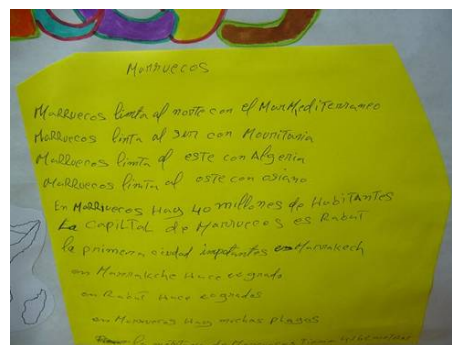 Marruecos
Marruecos limta al norte con el Mar Mediterraneo
Marruecos limta al sur con Mouritania
Marruecos limta al este con Algeria
Marruecos limta al oste con osiano
En Marruecos Hay 40 millones de Habitantes
La capiltal de Marruecos es Rabat
la primera ciudad impotantes es Marrakech
en Marrakche Hace 20 grado
en Rabat Hace 20 grados
en Marruecos Hay muchas playas